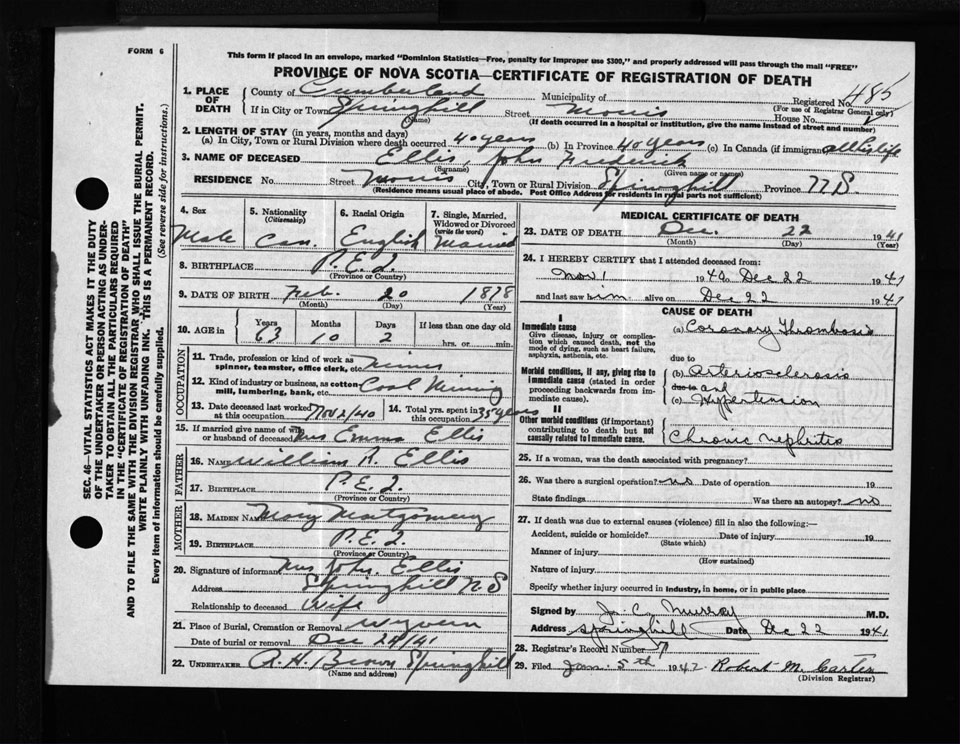 FORM 6
This form if placed in an envelope, marked "Dominion Statistics—Free, penalty for improper use $300," and properly addressed will pass through the mail "FREE"
PROVINCE OF NOVA SCOTIA—CERTIFICATE OF REGISTRATION OF DEATH
SEC. 46—VITAL STATISTICS ACT MAKES IT THE DUTY
OF THE UNDERTAKER OR PERSON ACTING AS UNDER-
TAKER TO OBTAIN ALL THE PARTICULARS REQUIRED
IN THE "CERTIFICATE OF REGISTRATION OF DEATH"
AND TO FILE THE SAME WITH THE DIVISION REGISTRAR, WHO SHALL ISSUE THE BURIAL PERMIT.
WRITE PLAINLY WITH UNFADING INK. THIS IS A PERMANENT RECORD.
Every item of information should be carefully supplied. (See reverse side for instructions.)
1. PLACE OF DEATH
County of Cumberland Municipality of Registered No. 485
(For use of Registrar General only)
If in City or Town Springhill Street Morris House No.
(Name) (If death occurred in a hospital or institution, give the name instead of street and number)
2. LENGTH OF STAY (in years, months and days)
(a) In City, Town or Rural Division where death occurred 40 years (b) In Province 40 years (c) In Canada (if immigrant) all his life
3. NAME OF DECEASED Ellis, John Frederick
(Surname) (Given name or names)
RESIDENCE No. Street Morris City, Town or Rural Division Springhill Province N S.
(Residence means usual place of abode. Post Office Address for residents in rural parts not sufficient)
4. Sex Male
5. Nationality (Citizenship) Can.
6. Racial Origin English
7. Single, Married, Widowed or Divorced (write the word) Married
8. BIRTHPLACE P.E.I.
(Province or Country)
9. DATE OF BIRTH Feb. 20 1878
(Month) (Day) (Year)
10. AGE in Years 63 Months 10 Days 2 If less than one day old hrs. or min.
OCCUPATION
11. Trade, profession or kind of work as spinner, teamster, office clerk, etc. Miner
12. Kind of industry or business, as cotton mill, lumbering, bank, etc. Coal Mining
13. Date deceased last worked at this occupation Nov 2/40
14. Total yrs. spent in this occupation 35 years
15. If married give name of wife or husband of deceased Mrs Emma Ellis
FATHER
16. NAME William A. Ellis
17. BIRTHPLACE P.E.I.
(Province or Country)
MOTHER
18. MAIDEN NAME Mary Montgomery
19. BIRTHPLACE P.E.I.
(Province or Country)
20. Signature of informant Mrs John. Ellis
Address Springhill N S
Relationship to deceased Wife
21. Place of Burial, Cremation or Removal Wyvern
Date of burial or removal Dec 24/41
22. UNDERTAKER A. H. Brown Springhill
(Name and address)
MEDICAL CERTIFICATE OF DEATH
23. DATE OF DEATH Dec. 22 1941
(Month) (Day) (Year)
24. I HEREBY CERTIFY that I attended deceased from:
Nov 1 1940 Dec 22 1941
and last saw him alive on Dec 22 1941
CAUSE OF DEATH
I
Immediate cause
Give disease, injury or complication which caused death, not the mode of dying, such as heart failure, asphyxia, asthenia, etc.
(a) Coronary Thrombosis
due to
Morbid conditions, if any, giving rise to immediate cause (stated in order proceeding backwards from immediate cause).
(b) Arteriosclerosis
due to and
(c) Hypertension
II
Other morbid conditions (if important) contributing to death but not causally related to immediate cause.
Chronic Nephritis
25. If a woman, was the death associated with pregnancy?
26. Was there a surgical operation? no Date of operation 19
State findings Was there an autopsy? no
27. If death was due to external causes (violence) fill in also the following:
Accident, suicide or homicide? Date of injury 19
(State which)
Manner of injury
(How sustained)
Nature of injury
Specify whether injury occurred in industry, in home, or in public place
Signed by J. C. Murray M.D.
Address Springhill Date Dec 22 1941
28. Registrar's Record Number 7
29. Filed Jan. 5th 1942 Robert M. Carter
(Division Registrar)